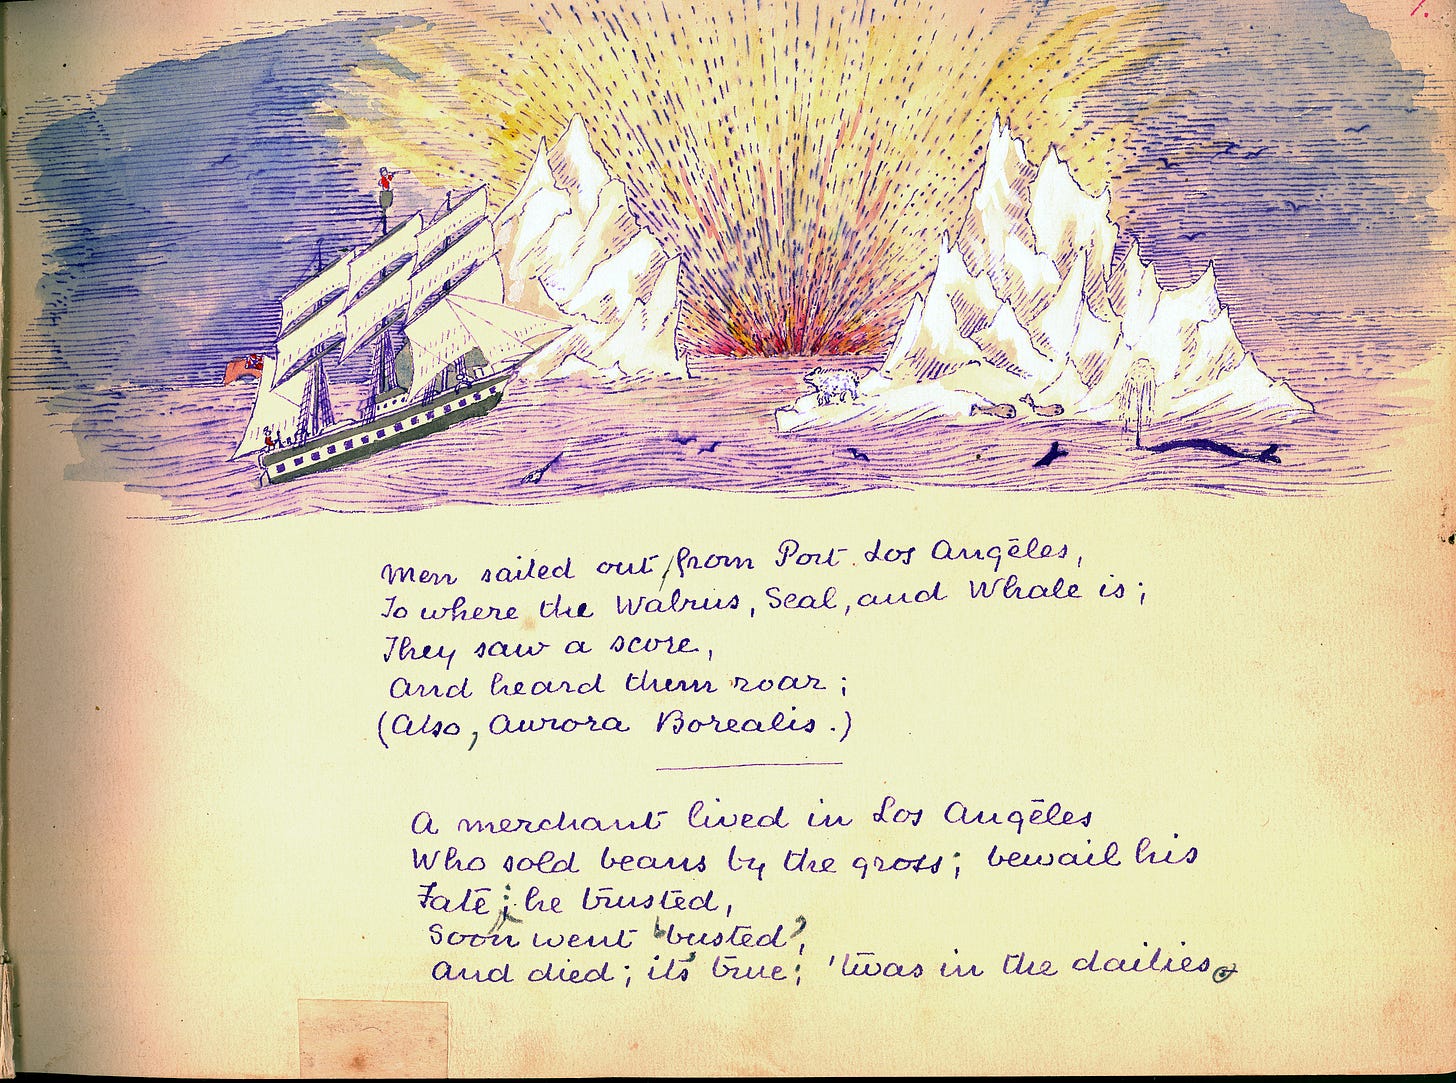 1.
Men sailed out from Port Los Angēles,
To where the Walrus, Seal, and Whale is;
They saw a score,
And heard them roar;
(Also, Aurora Borealis.)
A merchant lived in Los Angēles
Who sold beans by the gross; bewail his
Fate; he trusted,
Soon went 'busted',
And died; it's true; 'twas in the dailies.